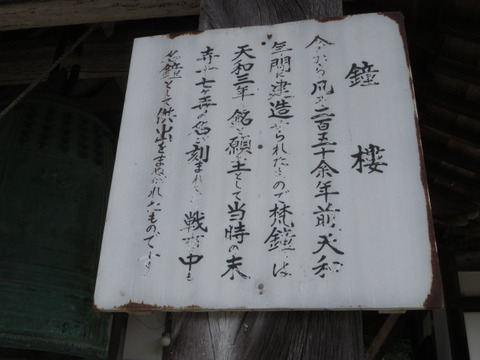 鐘樓
今から凡そ二百五十余年前天和
年間に建造せられたもので梵鐘は
天和三年 銘 願主として当時の末
寺 七ヶ寺の名が刻まれ 戦時中も
名鐘として供出をまぬがれたものです